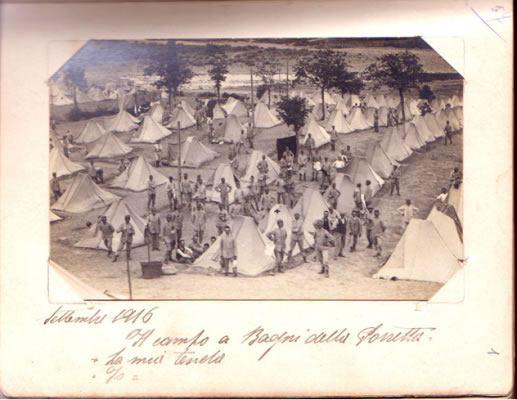 Settembre 1916
Il campo a Bagni della Porretta.
+ La mia tenda
• Io =